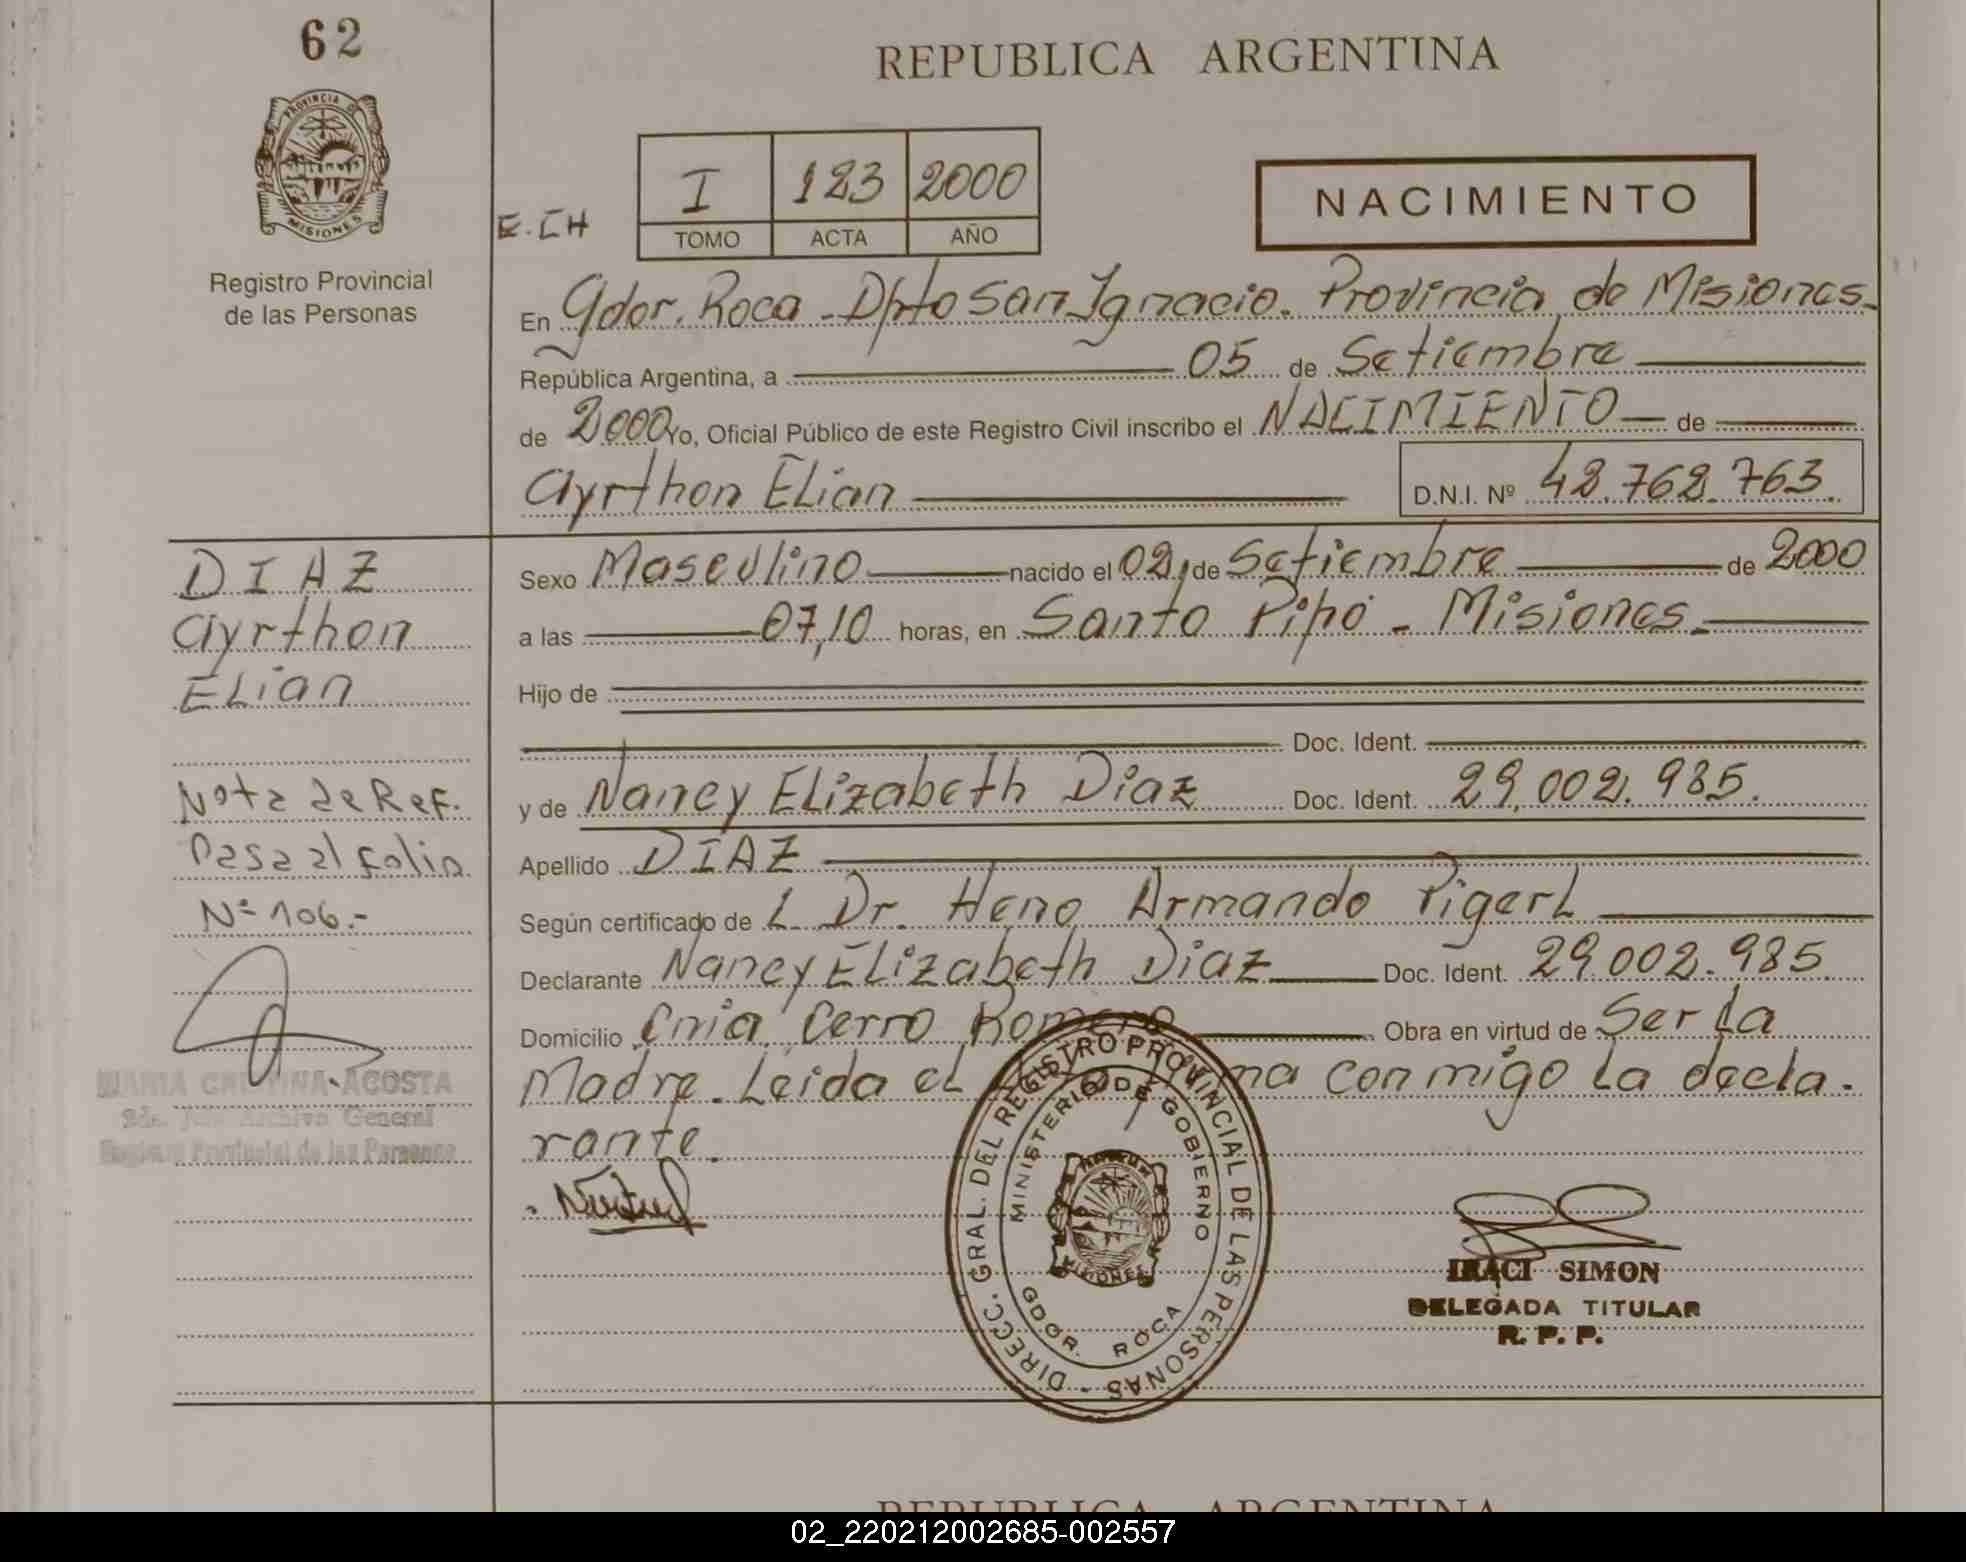 62
PROVINCIA DE
MISIONES
Registro Provincial
de las Personas
REPUBLICA ARGENTINA
E.CH
I 123 2000
TOMO ACTA AÑO
NACIMIENTO
En Gdor. Roca - Dpto San Ignacio. Provincia de Misiones.
República Argentina, a 05 de Setiembre
de 2000 Yo, Oficial Público de este Registro Civil inscribo el NACIMIENTO de
Ayrthon Elian D.N.I. Nº 42.762.763.
DIAZ
Ayrthon
Elian
Nota de Ref.
Pasa al folio
Nº 106.-
MARIA CRISTINA ACOSTA
Archivo General
Registro Provincial de las Personas
Sexo Masculino nacido el 02, de Setiembre de 2000
a las 07,10 horas, en Santo Pipó - Misiones.
Hijo de
Doc. Ident.
y de Nancy Elizabeth Diaz Doc. Ident. 29.002.985.
Apellido DIAZ
Según certificado de L Dr. Heno Armando Pigerl
Declarante Nancy Elizabeth Diaz Doc. Ident. 29.002.985.
Domicilio Cnia. Cerro Romero Obra en virtud de Ser La
Madre. Leida el conmigo la decla-
rante.
DIRECC. GRAL. DEL REGISTRO PROVINCIAL DE LAS PERSONAS -
MINISTERIO DE GOBIERNO
MISIONES
GDOR. ROCA
IRACI SIMON
DELEGADA TITULAR
R. P. P.
REPUBLICA ARGENTINA
02_220212002685-002557